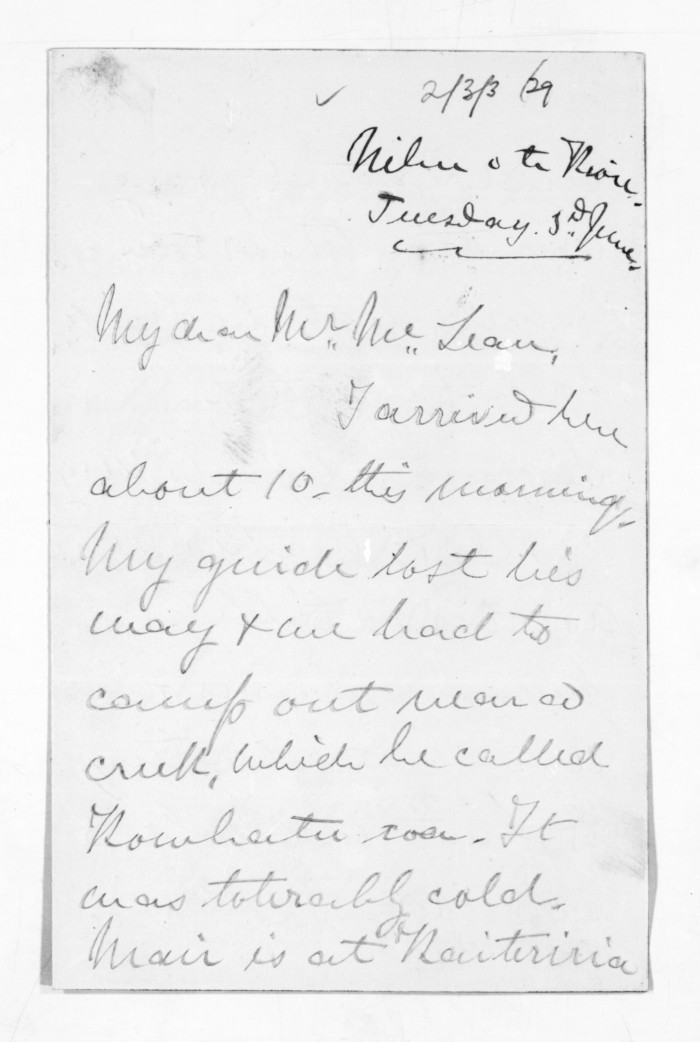 2/3/3 /29
Nihu o te Kiore.
Tuesday. 3rd June.
My dear Mr. Mc. Lean,
I arrived here
about 10 - this morning.
My guide lost his
way & we had to
camp out near a
creek, which he called
Kowhatu roa. It
was tolerably cold.
Mair is at Kaiteriria